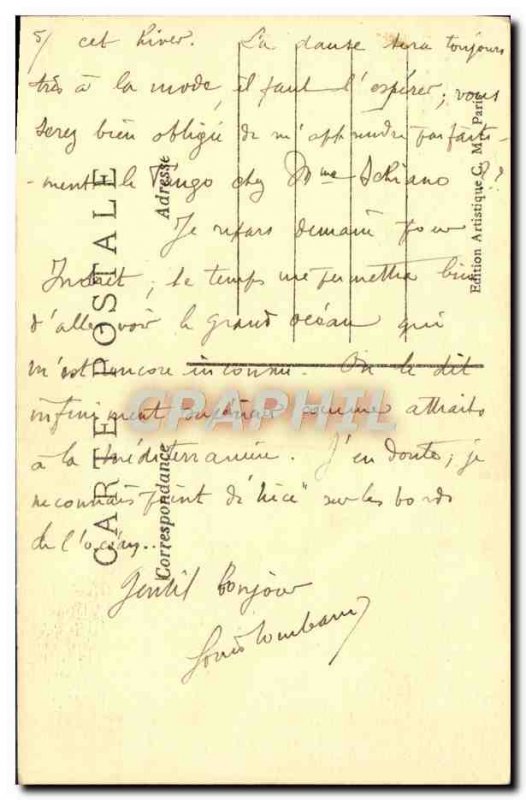 5/ cet hiver. La danse sera toujours
très à la mode, il faut l'espérer; vous
serez bien obligée de m'apprendre parfaite-
-ment le Tango chez Mme Schiano ??
Je repars demain pour
; le temps me permettra bien
d'aller voir le grand océan qui
m'est encore inconnu. On le dit
infiniment supérieur comme attraits
à la Méditerranée. J'en doute; je
ne connais point de "Nice" sur les bords
de l'océan...
Gentil bonjour
Louis
CARTE POSTALE
Correspondance
Adresse
Edition Artistique C. M. Paris
CPAPHIL